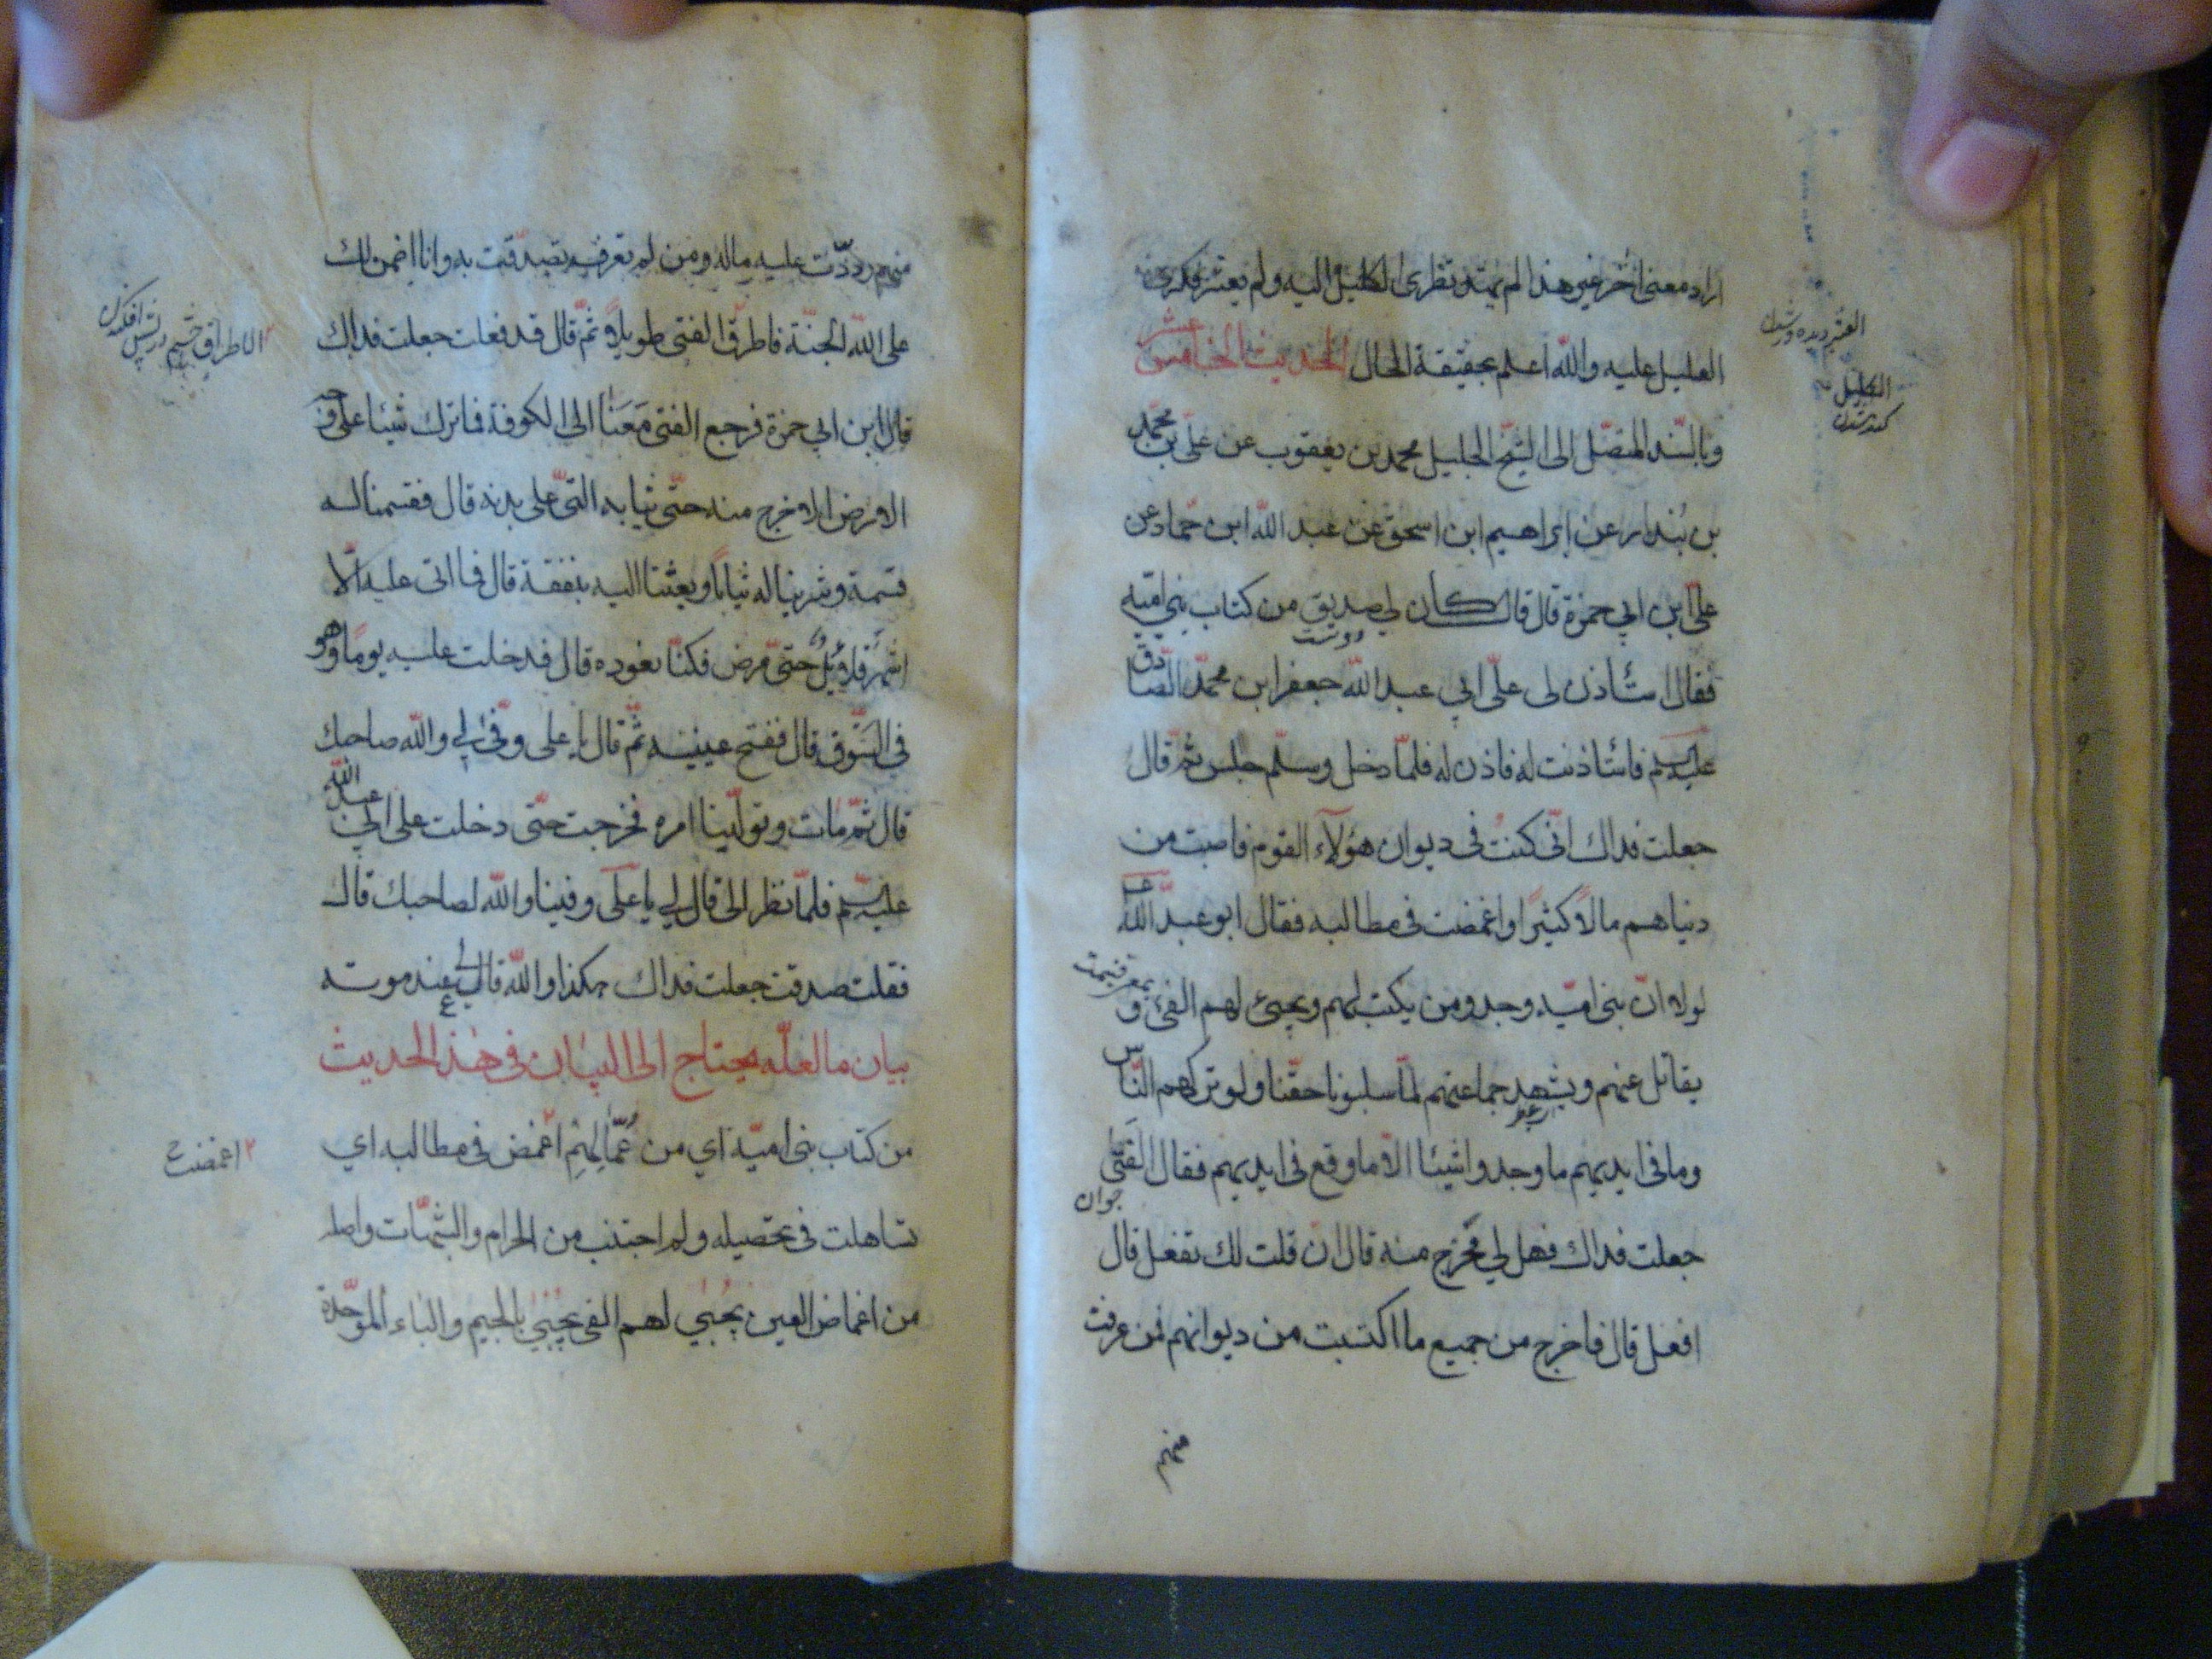 اراد معنى اخر غير هذا لم يهتد نظرى الكليل اليه ولم يعثر فكرى
العليل عليه والله اعلم بحقيقة الحال الحديث الخامس عشر
وبالسند المتصل الى الشيخ الجليل محمد بن يعقوب عن على بن محمد
بن بندار عن إبراهيم ابن اسحق عن عبد الله ابن حماد عن
على ابن ابي حمزة قال قال كان لي صديق من كتاب بني امية
دوست
فقال استأذن لى على ابي عبد الله جعفر ابن محمد الصادق
عليه السلم فاستأذنت له فاذن له فلما دخل وسلم جلس ثم قال
جعلت فداك انى كنت فى ديوان هؤلآء القوم فاصبت من
دنياهم مالاً كثيرًا واغمضت فى مطالبه فقال ابو عبد الله ع
لولا ان بنى امية وجدوا من يكتب لهم ويجبئ لهم الفئ و
يقاتل عنهم ويشهد جماعتهم لما سلبونا حقنا ولو تركهم الناس
وما فى ايديهم ما وجدوا شيئا الا ما وقع فى ايديهم فقال الفتى
جوان
جعلت فداك فهل لي مخرج منه قال ان قلت لك تفعل قال
افعل قال فاخرج من جميع ما اكتسبت من ديوانهم فمن عرفت
منهم
الكليل
كند شدن
منهم رددت عليه ماله ومن لم تعرف تصدقت به وانا اضمن لك
على الله الجنة فاطرق الفتى طويلاً ثم قال قد فعلت جعلت فداك
قال ابن ابي حمزة فرجع الفتى معنا الى الكوفة فما ترك شيئا على وجه
الارض الا خرج منه حتى ثيابه التى على بدنه قال فقسمنا له
قسمة وشرينا له ثياباً وبعثنا اليه بنفقة قال فما اتى عليه الا
اشهر قلائل حتى مرض فكنا نعوده قال فدخلت عليه يوماً وهو
فى السوق قال ففتح عينيه ثم قال يا على وفى لي والله صاحبك
قال ثم مات وتولينا امره فخرجت حتى دخلت على ابي عبد الله
عليه السلم فلما نظر الى قال لي يا على وفينا والله لصاحبك قال
فقلت صدقت جعلت فداك هكذا والله قال لي عند موته
بيان ما لعله يحتاج الى البيان فى هذا الحديث
من كتاب بنى امية اي من عمالهم اغمض فى مطالبه اي
تساهلت فى تحصيله ولم اجتنب من الحرام والشبهات واصله
من اغماض العين يجبي لهم الفئ يجبي بالجيم والباء الموحدة
٢ اغمضت ح